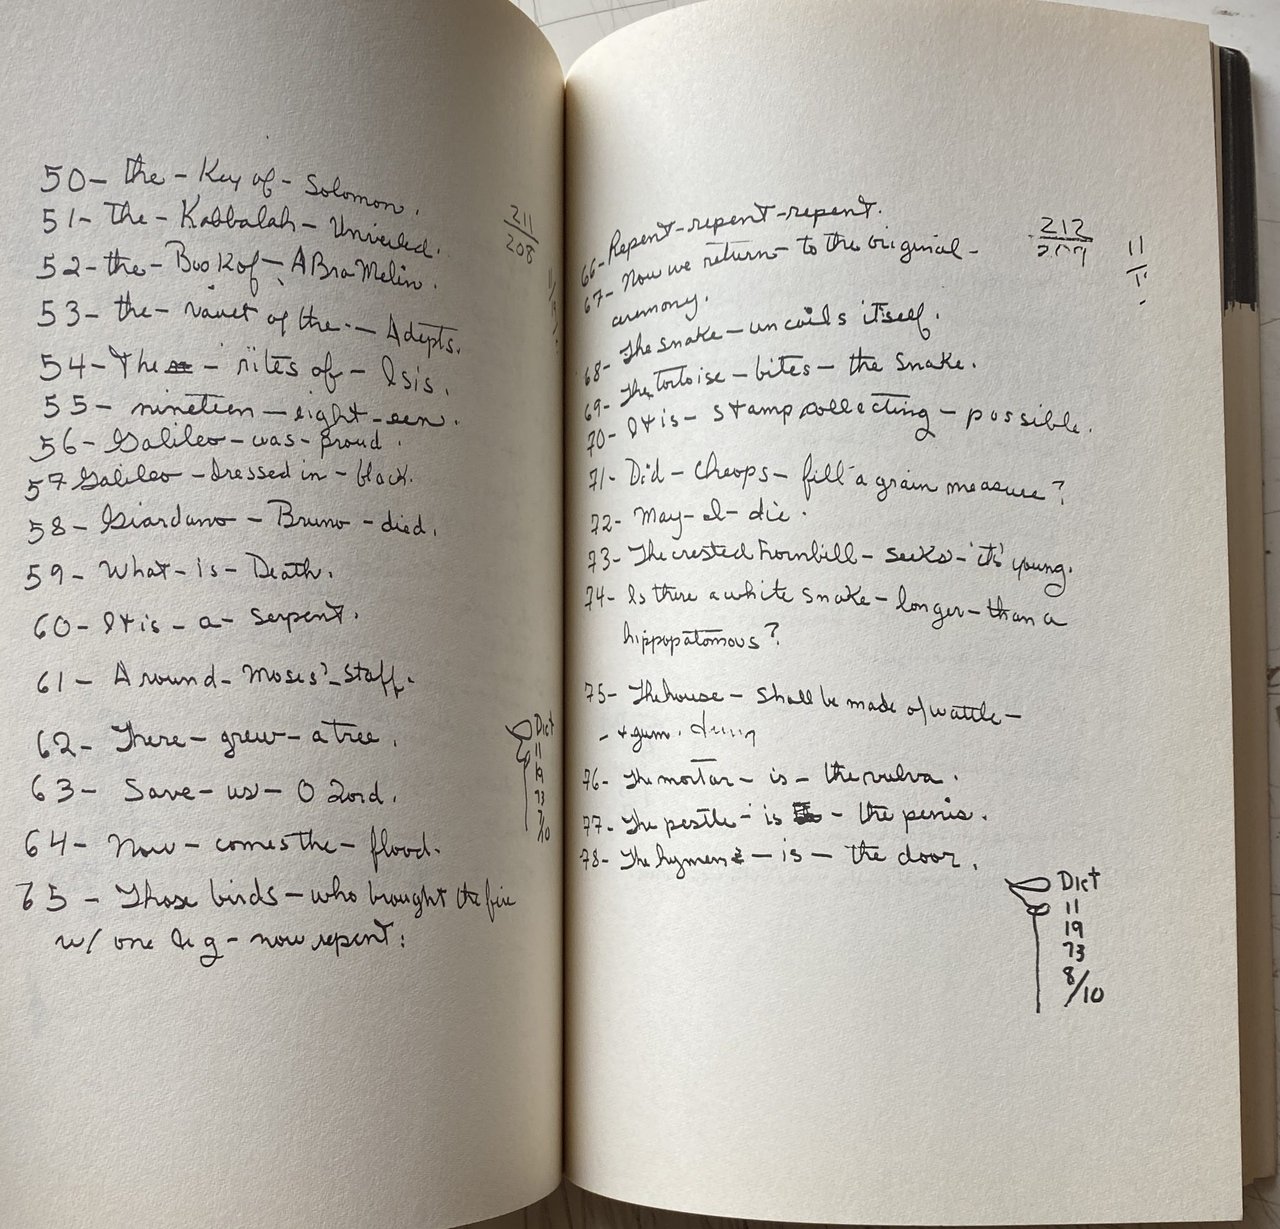 50- the - Key of - Solomon.
51- the - Kabbalah - Unveiled.
52- the - Book of - ABraMelin.
53- the - vault of the - Adepts.
54- The - rites of - Isis.
55- nineteen - eight-een.
56- Galileo - was - proud.
57 Galileo - dressed in - black.
58- Giardano - Bruno - died.
59- What - is - Death.
60- It is - a - serpent.
61- Around - Moses' - staff.
62- There - grew - a tree.
63- Save - us - O Lord.
64- Now - comes the - flood.
65- Those birds - who brought the fire
w/ one leg - now repent:
211
208
Dict
11
19
73
7/10
66- Repent - repent - repent.
67- Now we return - to the original -
ceremony.
68- The snake - uncoils itself.
69- The tortoise - bites - the snake.
70- It is - stamp collecting - possible.
71- Did - Cheops - fill a grain measure?
72- May - I - die.
73- The crested hornbill - seeks - its' young.
74- Is there a white snake - longer - than a
hippopatomous?
75- The house - shall be made of wattle -
- + gum. dung
76- The mortar - is - the vulva.
77- The pestle - is - the penis.
78- The hymen - is - the door.
212
11
Dict
11
19
73
8/10